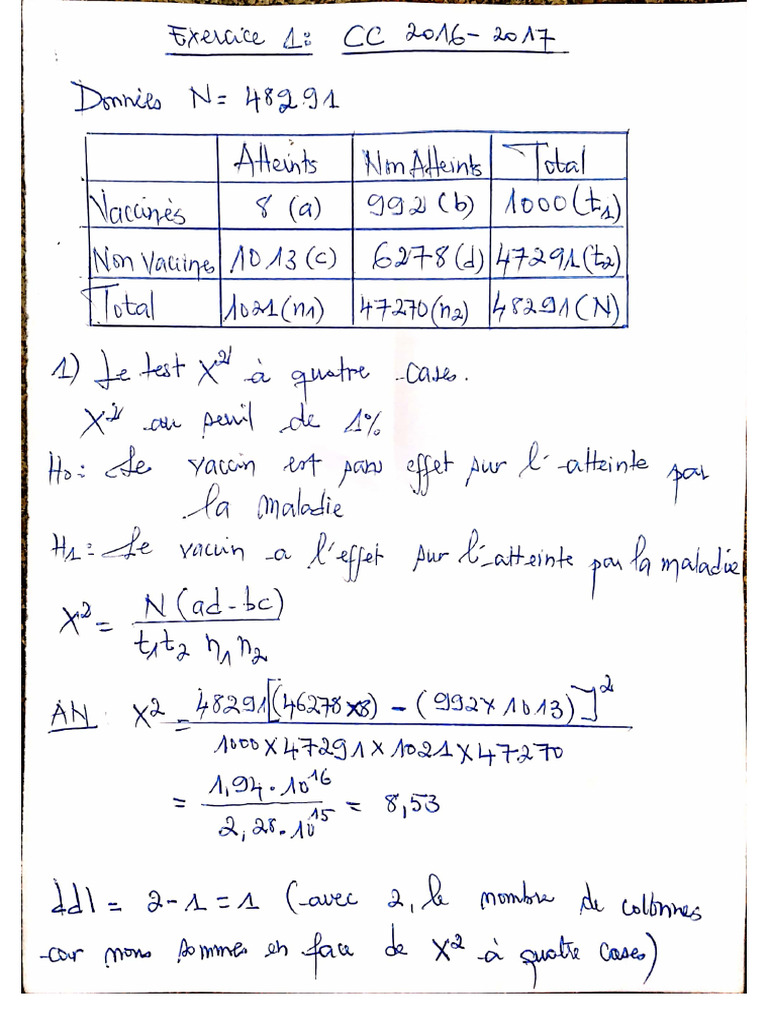 Exercice 1: CC 2016-2017
Données N= 48291
Atteints Non Atteints Total
Vaccinés 8 (a) 992 (b) 1000 (t1)
Non Vaccines 1013 (c) 6278 (d) 47291 (t2)
Total 1021 (n1) 47270 (n2) 48291 (N)
1) Le test X² à quatre cases.
X² au seuil de 1%
H0: Le vaccin est sans effet sur l'atteinte par
la maladie
H1: Le vaccin a l'effet sur l'atteinte par la maladie
X² = N (ad-bc) / t1t2 n1n2
AN: X² = 48291[(46278x8) - (992x1013)]² / 1000x47291x1021x47270
= 1,94.10^16 / 2,28.10^15 = 8,53
ddl = 2-1=1 (avec 2, le nombre de colonnes
car nous sommes en face de X² à quatre cases)